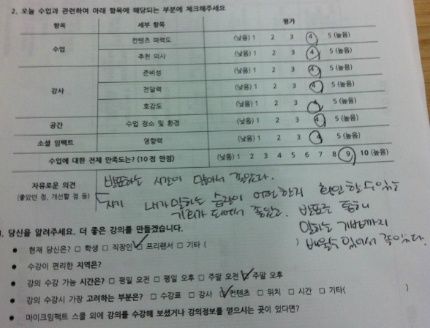 2. 오늘 수업과 관련하여 아래 항목에 해당되는 부분에 체크해주세요
항목 세부 항목 평가
수업 컨텐츠 매력도 (낮음) 1 2 3 4 5 (높음)
추천 의사 (낮음) 1 2 3 4 5 (높음)
강사 준비성 (낮음) 1 2 3 4 5 (높음)
전달력 (낮음) 1 2 3 4 5 (높음)
호감도 (낮음) 1 2 3 4 5 (높음)
공간 수업 장소 및 환경 (낮음) 1 2 3 4 5 (높음)
소셜 임팩트 영향력 (낮음) 1 2 3 4 5 (높음)
수업에 대한 전체 만족도는? (10점 만점) (낮음) 1 2 3 4 5 6 7 8 9 10 (높음)
자유로운 의견
(좋았던 점, 개선할 점 등)
발표하는 시간이 많아서 좋았다.
내가 말하는 습관이 어떤한지 확인할 수 있는
기회가 되어서 좋았고, 발표를 통해
말하는 기법까지
배울 수 있어서 좋았다.
. 당신을 알려주세요. 더 좋은 강의를 만들겠습니다.
● 현재 당신은? □ 학생 □ 직장인 □ 프리랜서 □ 기타 ( )
● 수강이 편리한 지역은?
● 강의 수강 가능 시간은? □ 평일 오전 □ 평일 오후 □ 주말 오전 □ 주말 오후
● 강의 수강시 가장 고려하는 부분은? □ 수강료 □ 강사 □ 컨텐츠 □ 위치 □ 시간 □ 기타( )
● 마이크임팩트 스쿨 외에 강의를 수강해 보셨거나 강의정보를 얻으시는 곳이 있다면?